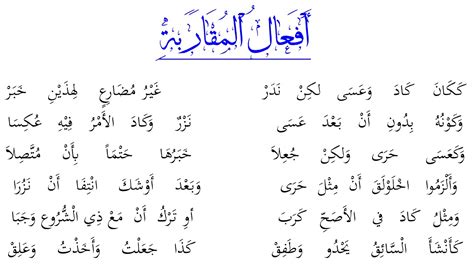 أَفْعَالُ الْمُقَارَبَةِ
كَكَانَ كَادَ وَعَسَى لكِنْ نَدَرْ غَيْرُ مُضَارِعٍ لِهذَيْنِ خَبَرْ
وَكَوْنُهُ بِدُونِ أَنْ بَعْدَ عَسَى نَزْرٌ وَكَادَ الأَمْرُ فِيْهِ عُكِسَا
وَكَعَسَى حَرَى وَلكِنْ جُعِلاَ خَبَرُهَا حَتْمَاً بِأَنْ مُتَّصِلاَ
وَأَلْزَمُوا اخْلَوْلَقَ أَنْ مِثْلَ حَرَى وَبَعْدَ أَوْشَكَ انْتِفَا أَنْ نَزُرَا
وَمِثْلُ كَادَ في الأصَحِّ كَرَبَ أو تَرْكُ أَنْ مَعَ ذِي الشُّرُوعِ وَجَبَا
كَأَنْشَأَ السَّائِقُ يَحْدُو وَطَفِقْ كَذَا جَعَلْتُ وَأَخَذْتُ وَعَلِقْ